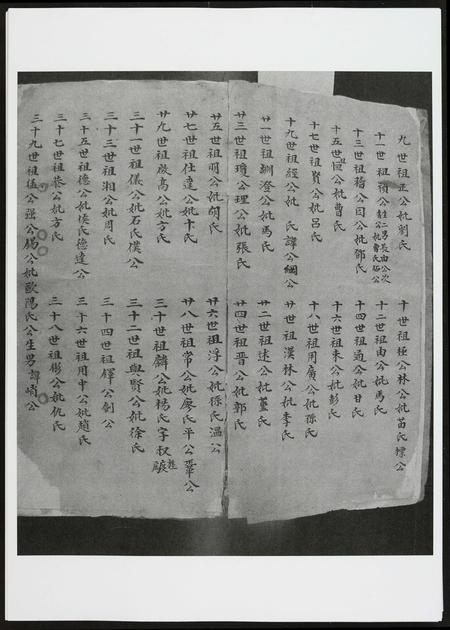 九世祖正公妣劉氏
十世祖極公林公妣苗氏標公
十一世祖積公生二男長由公次公妣曹氏
十二世祖由公妣馬氏
十三世祖稽公因公妣鄧氏
十四世祖通公妣甘氏
十五世祖恒公妣曹氏
十六世祖東公妣彭氏
十七世祖賢公妣呂氏
十八世祖用廣公妣孫氏
十九世祖經公妣 氏譚公綱公
廿世祖漢林公妣李氏
廿一世祖訓澄公妣馬氏
廿二世祖述公妣董氏
廿三世祖瓊公理公妣張氏
廿四世祖晋公妣郭氏
廿五世祖萌公妣胡氏
廿六世祖浮公妣孫氏温公
廿七世祖仕達公妣卞氏
廿八世祖常公妣廖氏平公鞏公
廿九世祖啟高公妣方氏
三十世祖麟公妣楊氏字叔
三十一世祖儀公妣石氏僕公
三十二世祖興賢公妣徐氏
三十三世祖湘公妣周氏
三十四世祖鐸公劍公
三十五世祖德公妣侯氏德達公
三十六世祖用中公妣趙氏
三十七世祖恭公妣方氏
三十八世祖彬公妣仇氏
三十九世祖猛公强公錫公妣歐陽氏公生男諱靖公